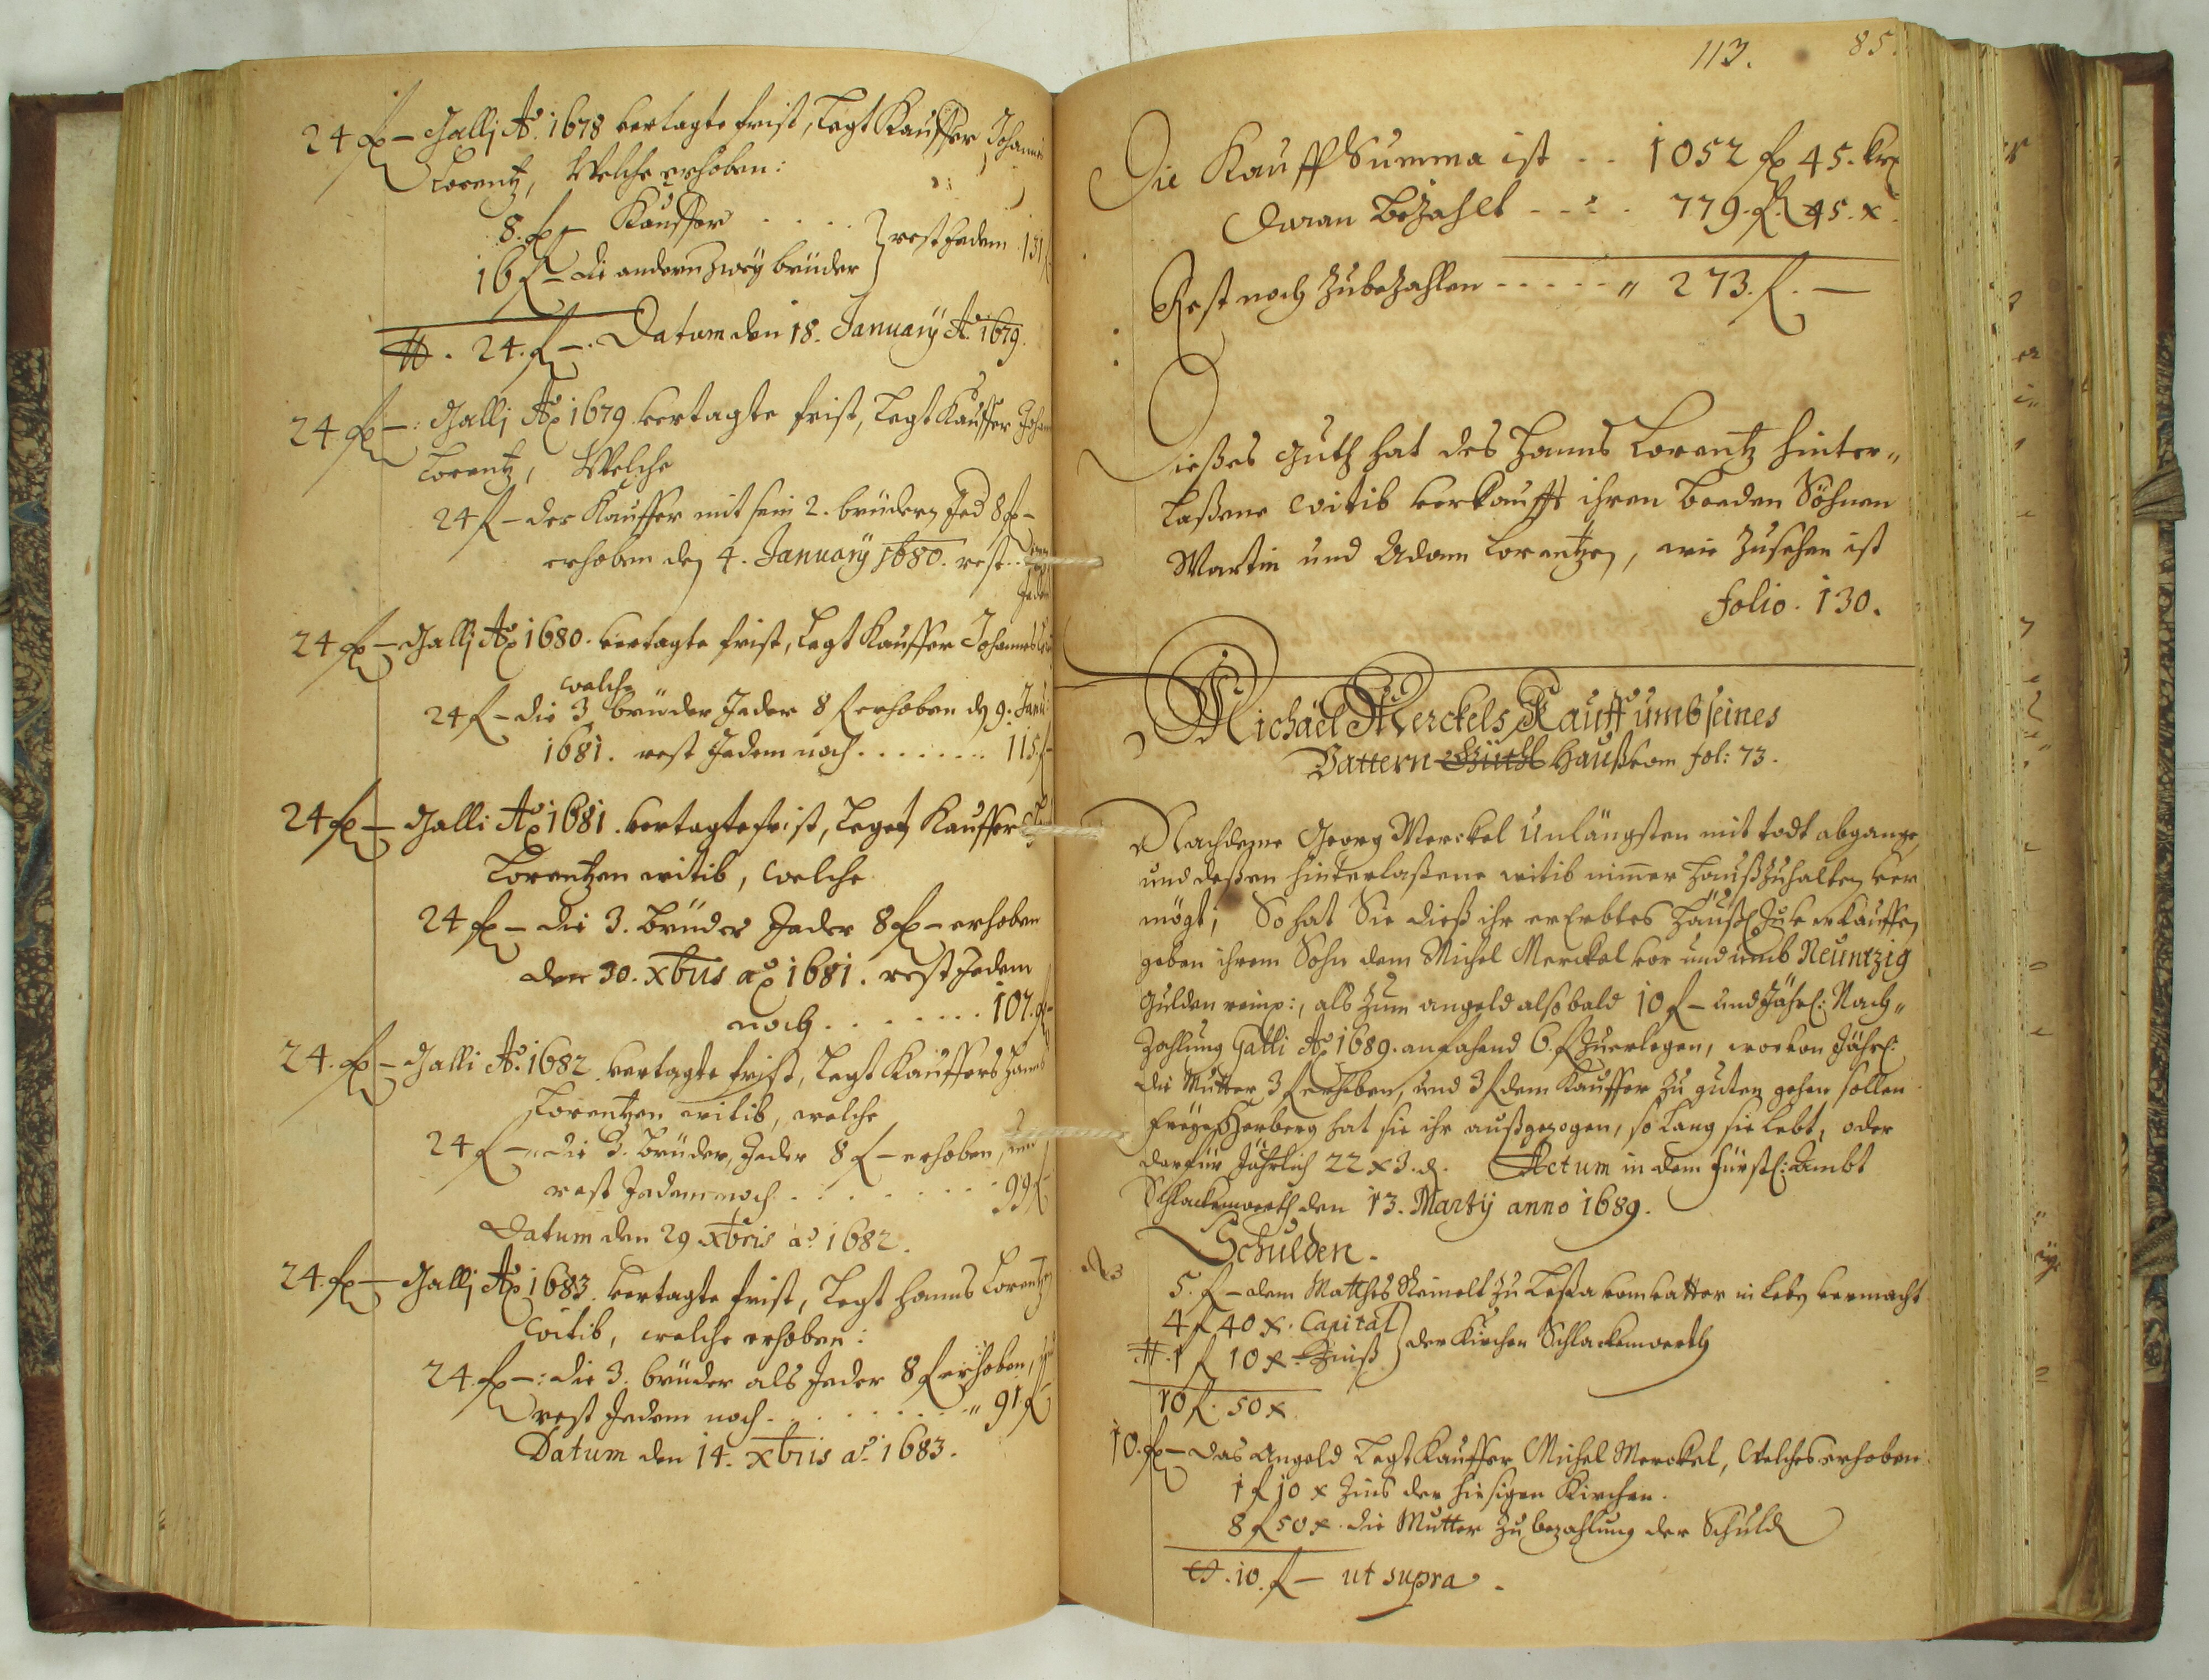 24 f – Gallj Aõ. 1678 vertagte frist, legt Kauffer Johannes
Lorentz, Welche erhoben:
8. f – Kauffer . . . .
16 f – die andern zweÿ brüder } rest Jedem 131 f
#. 24. f –. Datum den 18. Januarÿ Aõ 1679.
24. f –: Gallj Aõ 1679. vertagte frist, legt Kauffer Joha
Lorentz, Welche
24 f – der Kauffer mit sein 2. brüdern Jed 8 f –
erhoben den 4. Januarÿ 1680. rest..
Jedem
24 f – Gallj Aõ 1680. vertagte frist, legt Kauffer Johannes
welche
24 f – die 3 brüder Jeder 8 f erhoben den 9. Janu:
1681. rest Jedem noch . . . . . . . 115 f
24 f – Galli Aõ 1681. vertagte frist, legt Kauffer
Lorentzen witib, welche
24 f – die 3. brüder Jeder 8 f – erhoben
den 30. xbris aõ 1681. rest Jedem
noch . . . . . . . 107. f
24. f – Galli Aõ. 1682. vertagte frist, legt Kauffers Hannß
Lorentzen witib, welche
24 f – die 3. brüder, Jeder 8 f – erhoben,
rest Jedem noch . . . . . . . . 99 f
Datum den 29 xbris aõ 1682.
24. f – Gallj Aõ 1683. vertagte frist, legt Hanns Lorentz
Witib, welche erhoben:
24. f –: die 3. brüder als Jeder 8 f erhoben,
rest Jedem noch . . . . . . . „ 91 f
Datum den 14. xbris aõ. 1683.
113. 85.
Die Kauff Summa ist . . 1052 f 45. krx
Daran Bezahlt - - - . 779. f. 45. x.
Rest noch zubezahlen - - - - - „ 273. f. –
Dießes guth hat des Hanns Lorentz hinter„
laßene witib verkaufft ihren beeden Söhnen
Martin und Adam Lorentzen, wie zusehen ist
folio. 130.
Michäel Merckels Kauff umb seines
Vattern Güthl Hauß vom fol: 73.
Nachdeme Georg Merckel Unlängsten mit todt abgange,
und deßen hinterlaßene witib nimer Haußzuhalten ver
mögt; So hat Sie dieß ihr ererbtes Häußl Zuverkauffen
geben ihrem Sohn dem Michel Merckel vor und umb Neuntzig
Gulden reinß:, als zum angeld alsobald 10 f – und Jährl: Nach„
Zahlung Galli Aõ 1689. anfahend 6. f Zuerlegen, worvon Jährl:
die Mutter 3 f erheben, und 3 f dem Kauffer zu guten gehen sollen
freÿe Herberg hat sie ihr außgezogen, so lang sie lebt, oder
darfür Jährlich 22 x 3. d. Actum in dem fürstl: Ambt
Schlackenwerth den 13. Martÿ anno 1689.
Schulden.
5. f – dem Matthes Reinelt zu Lesta vom vatter in leben vermacht
4 f 40 x. Capital
#. 1 f 10 x. Zinß } der Kirchen Schlackenwerth
10 f. 50 x
10. f – Das Angeld legt Kauffer Michel Merckel, Welches erhoben:
1 f 10 x Zins der hiesigen Kirchen.
8 f 50 x. die Mutter zu bezahlung der Schuld
#. 10. f – ut supra.